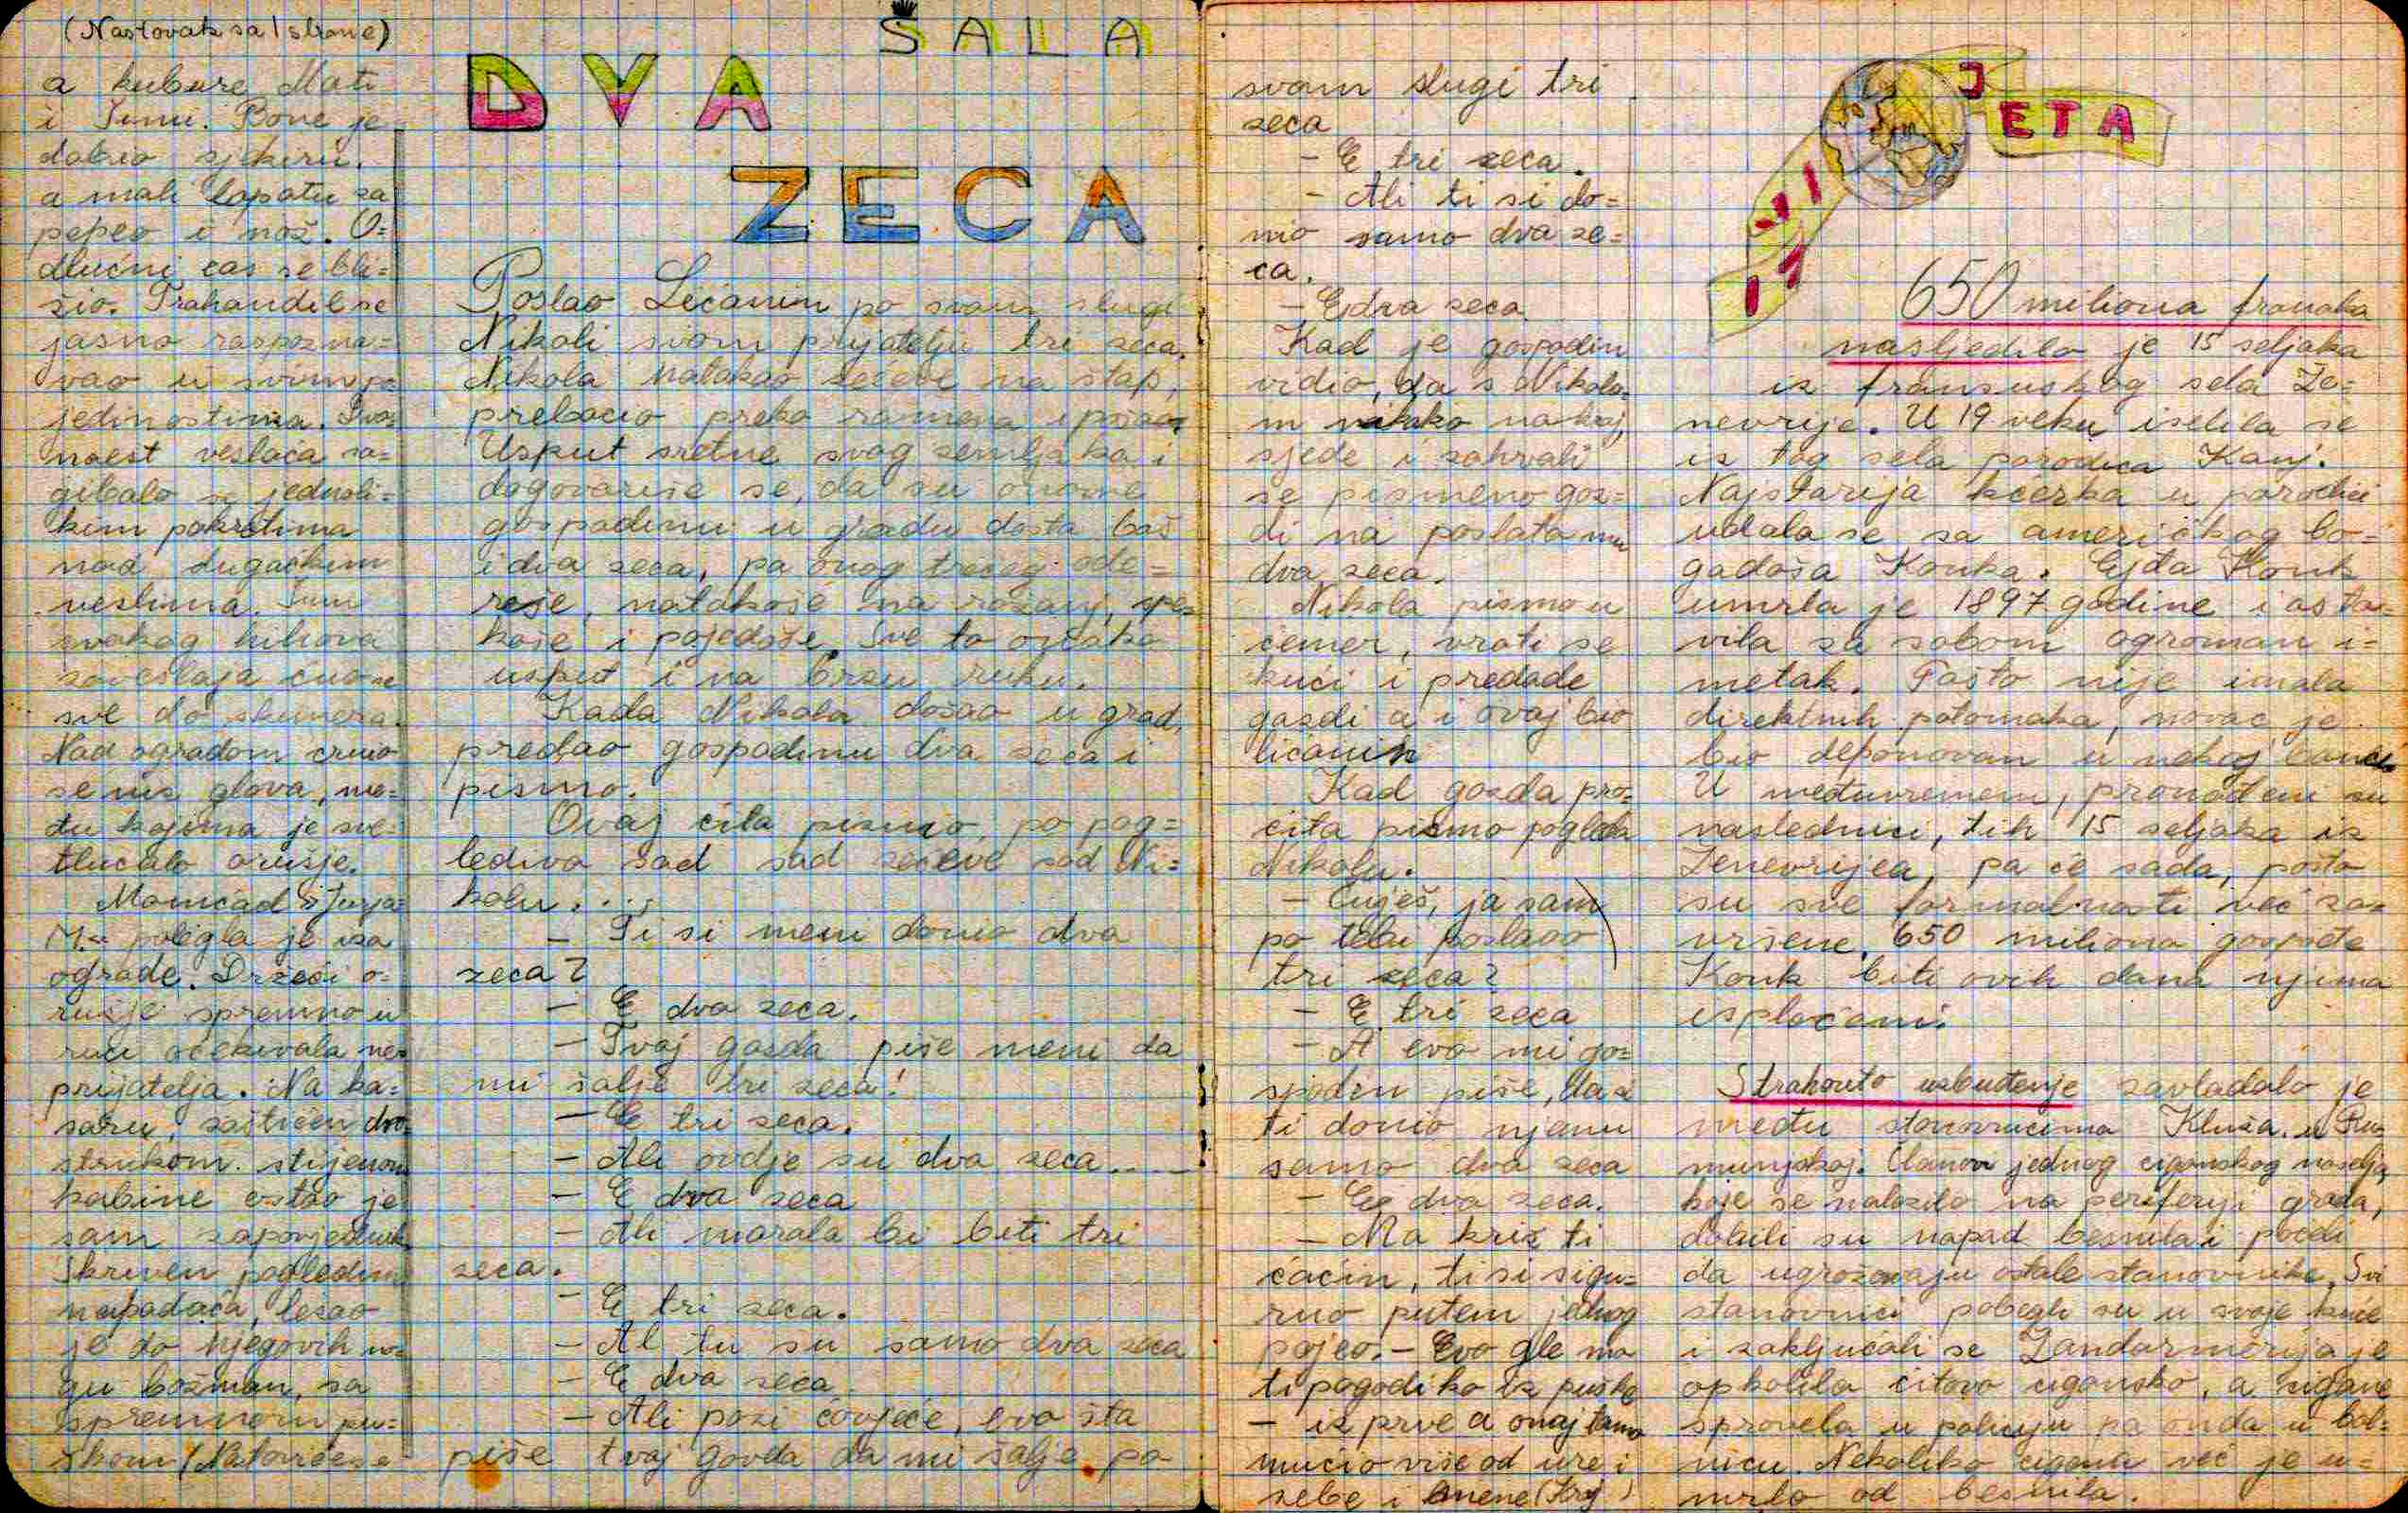 (Nastavak sa 1 strane)
a kubure Mati
i Jimi. Bone je
dobio sjekiru.
a mali lopatu za
pepeo i nož. O=
dlučni čas se bli=
žio. Trahandil se
jasno raspozna=
vao u svim po
jedinostima. Dva
naest veslača sa=
gibalo se jednoli=
kim pokretima
nad dugačkim
veslima. Šum
svakog
zaveslaja čuo se
sve do skunera.
Nad ogradom crnio
se niz glava, me=
đu kojima je sve=
tlucalo oružje.
Momčad
polegla je iza
ograde. Držeći o=
ružje spremno u
ruci očekivala ne=
prijatelja. Na ka=
saru, zaštićen dvo=
strukom stijenom
kabine ostao je
sam zapovjednik
Skriven pogledima
napadača, ležao
je do njegovih no=
gu božman, sa
spremnom pu=
škom (Nastaviće se
ŠALA
DVA
ZECA
Poslao Ličanin po svom slugi
Nikoli svom prijatelju tri zeca.
Nikola natakao zečeve na štap,
prebacio preko ramena i pošao
Usput sretne svog zemljaka i
dogovoriše se, da su onome
gospodinu u gradu dosta baš
i dva zeca, pa onog trećeg ode=
reše, natakoše na ražanj, spe=
koše i pojedoše. Sve to onako
usput i na brzu ruku.
Kada Nikola došao u grad,
predao gospodinu dva zeca i
pismo.
Ovaj čita pismo, po pog=
lediva sad sad zečeve sad Ni=
kolu....
- Ti si meni donio dva
zeca?
- E dva zeca.
- Tvoj gazda piše meni da
mi šalje tri zeca!
- E tri zeca.
- Ali ovdje su dva zeca....
- E dva zeca
- Ali morala bi biti tri
zeca.
- E tri zeca.
- Al tu su samo dva zeca
- E dva zeca
- Ali pazi čovječe, evo šta
piše tvoj gazda da mi šalje po
svom slugi tri
zeca
- E tri zeca.
- Ali ti si do=
nio samo dva ze=
ca.
- E dva zeca
Kad je gospodin
vidio, da s Nikolo=
m nikako na kraj,
sjede i zahvali
se pismeno gaz=
di na poslata mu
dva zeca.
Nikola pismo u
ćemer, vrati se
kući i predade
gazdi a i ovaj bio
ličanin
Kad gazda pro=
čita pismo pogleda
Nikolu.
- Čuješ, ja sam
po tebi poslao
tri zeca?
- E tri zeca
- A evo mi go=
spodin piše, da si
ti donio njemu
samo dva zeca
- E dva zeca.
- Ma križ ti
ćaćin, ti si sigu=
rno putem jednog
pojeo. - Evo gle ma
ti pogodi ko iz puške
- iz prve a onaj tamo
mučio više od ure i
sebe i mene (Kraj)
IZ SVIJETA
650 miliona franaka
nasljedilo je 15 seljaka
iz francuskog sela Že=
nevrije. U 19 veku iselila se
iz tog sela porodica Kanj.
Najstarija kćerka u porodici
udala se sa američkog bo=
gadoša Konka. Ejda Konk
umrla je 1897 godine i osta=
vila za sobom ogroman i=
metak. Pošto nije imala
direktnih potomaka, novac je
bio deponovan u nekoj banci
U međuvremenu, pronađeni su
naslednici, tih 15 seljaka iz
Ženevrijea, pa će sada, pošto
su sve formalnosti već za=
vršene, 650 miliona gospođe
Konk biti ovih dana njima
isplaćeni.
Strahovito uzbuđenje zavladalo je
među stanovnicima Kluža u Ru=
munjskoj. Članovi jednog ciganskog naselja,
koje se nalazilo na periferiji grada,
dobili su napad besnila i počeli
da ugrožavaju ostale stanovnike. Svi
stanovnici pobegli su u svoje kuće
i zaključali se Žandarmerija je
opkolila čitavo cigansko, a cigane
sprovela u policiju pa onda u bol=
nicu. Nekoliko cigana već je u=
mrlo od besnila.